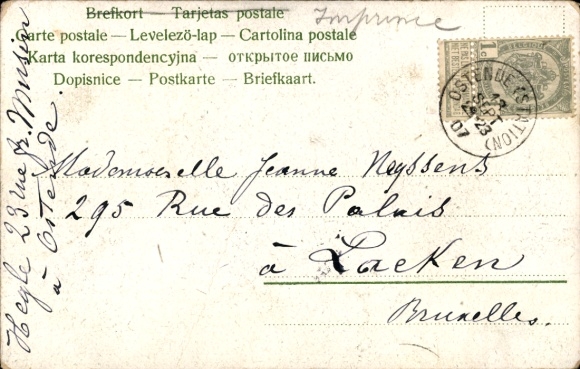 Brefkort — Tarjetas postale
Carte postale — Levelező-lap — Cartolina postale
Karta korespondencyjna — открытое письмо
Dopisnice — Postkarte — Briefkaart.
Imprimé
1c
BELGIQUE
OSTENDE (STATION)
12
SEPT
23
07
Mademoiselle Jeanne Neyssens
295 Rue des Palais
à Laeken
Bruxelles.
23 rue
à Ostende.